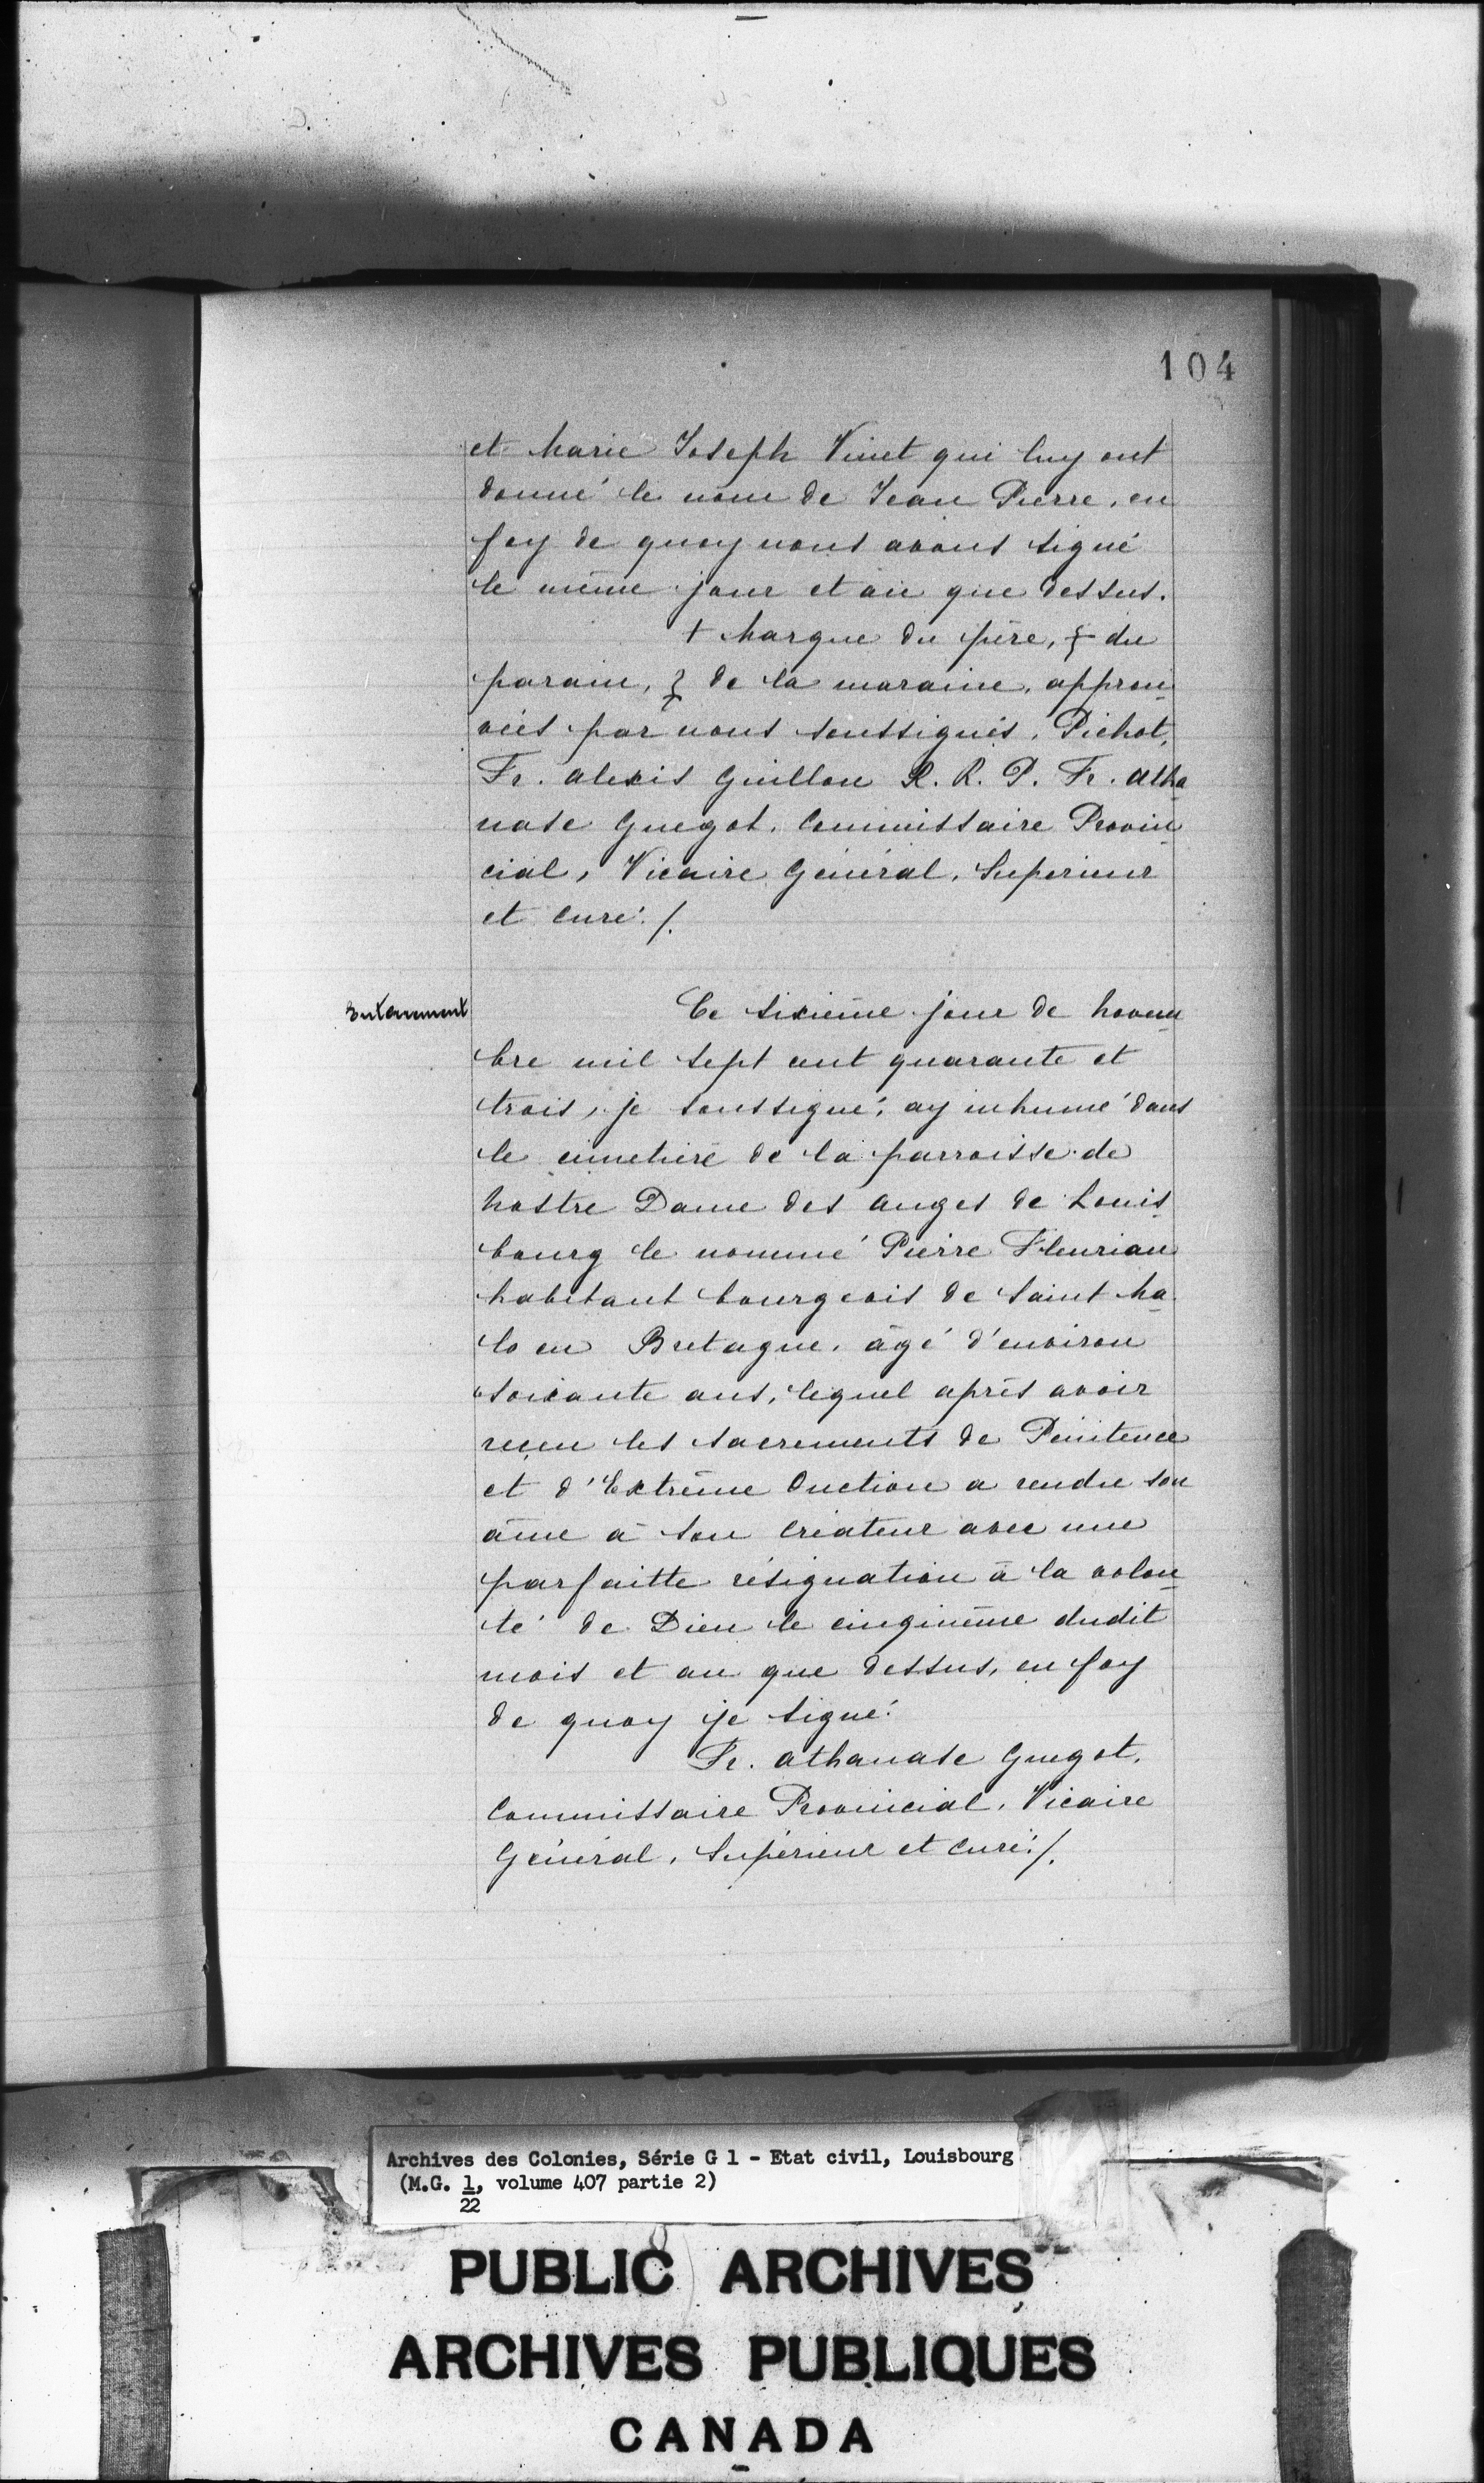 104
et Marie Joseph Vinet qui luy ont
donné le nom de Jean Pierre, en
foy de quoy nous avons signé
le même jour et an que dessus.
+ Marque du père, + du
parain, + de la maraine, approu
vées par nous soussignés. Pichot,
Fr. Alexis Guillou R. R. P. Fr. Atha
nase Guegot, Commissaire Provin
cial, Vicaire Général, Superieur
et curé./.
Entarement
Ce sixième jour de Novem
bre mil sept cent quarante et
trois, je soussigné, ay inhumé dans
le cimetière de la parroisse de
Nostre Dame des Anges de Louis
bourg le nommé Pierre Fleuriau
habitant bourgeois de Saint Ma
lo en Bretagne, âgé d'environ
soixante ans, lequel après avoir
reçeu les sacrements de Pénitence
et d'Extrême Onction a rendu son
âme à son créateur avec une
parfaitte résignation à la volon
té de Dieu le cinqiuème dudit
mois et an que dessus, en foy
de quoy je signé.
Fr. Athanase Guegot,
Commissaire Provincial, Vicaire
Général, Supérieur et curé./.
Archives des Colonies, Série G 1 - Etat civil, Louisbourg
(M.G. 1, volume 407 partie 2)
22
PUBLIC ARCHIVES
ARCHIVES PUBLIQUES
CANADA